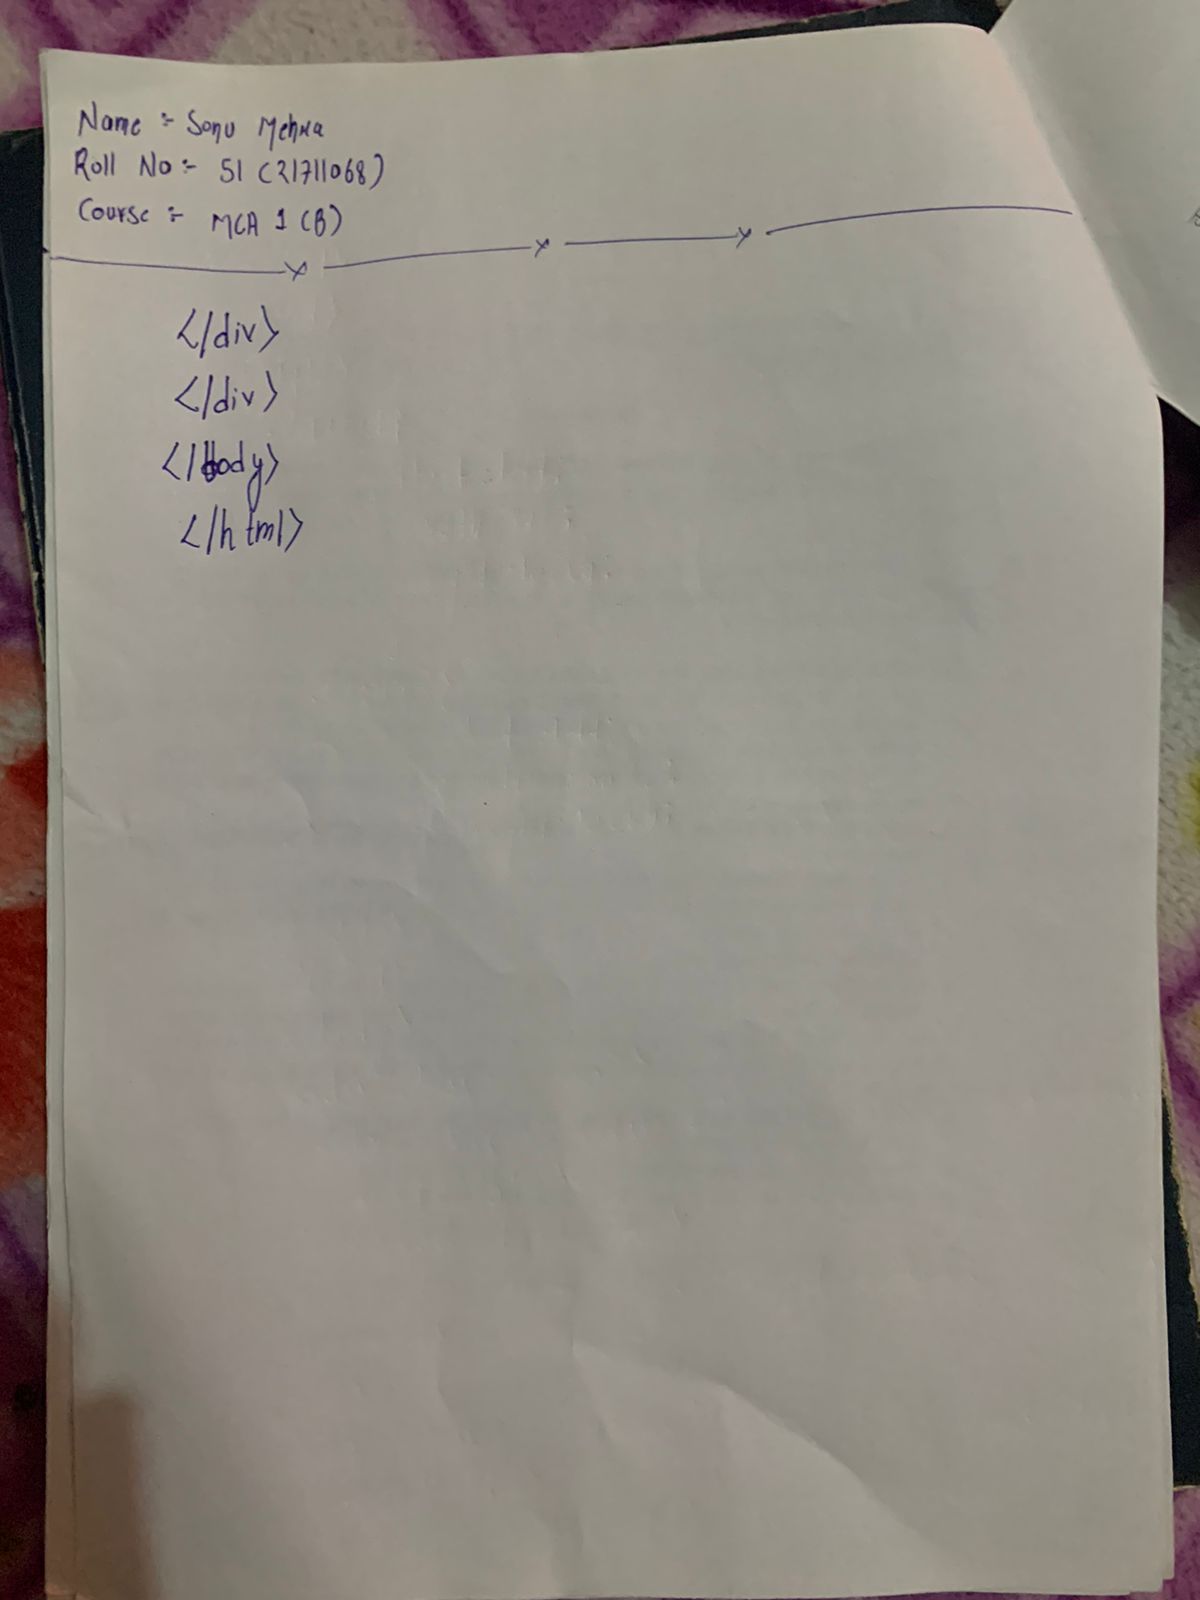 Name :- Sonu Mehra
Roll No :- 51 (21711068)
Course :- MCA 1 (B)
</div>
</div>
</body>
</html>